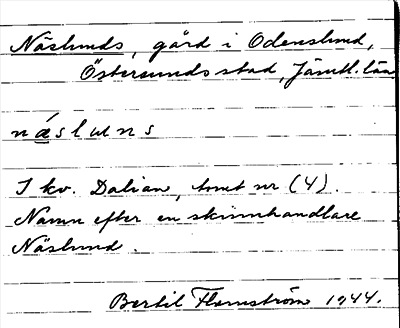 Näslunds, gård i Odenslund,
Östersunds stad, Jämtl. län
násluns
I kv. Dalian, tomt nr (4).
Namn efter en skinnhandlare
Näslund.
Bertil Flemström 1944.